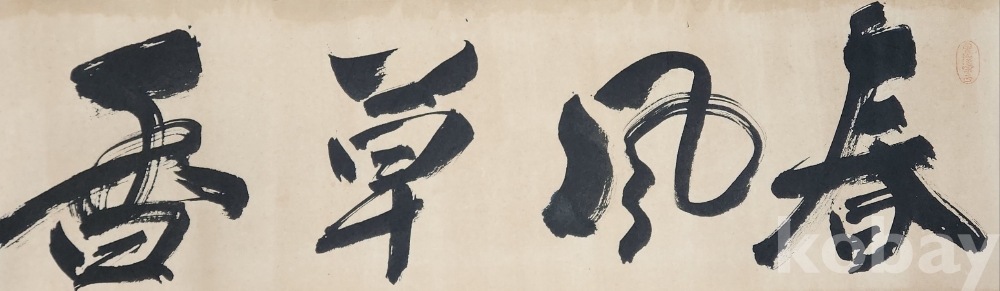 春風草香
kobay